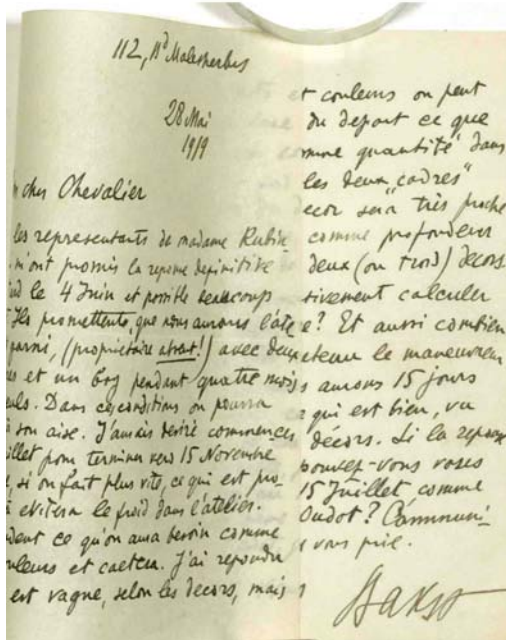 112, Bd Malesherbes
28 Mai
1919
n cher Chevalier
les representants de madame Rubin-
m'ont promis la reponse definitive
le 4 Juin et possible beaucoup
Ils promettent, que nous aurons l'ate
garni, (propriétaire absent!) avec deux
es et un boy pendant quatre mois
Dans ces conditions on pourra
à son aise. J'aurais desiré commencer
illet pour terminer vers 15 Novembre
si on fait plus vite, ce qui est pro-
evitera le froid dans l'atelier.
dent ce qu'on aura besoin comme
uleurs et caetera. J'ai repondu
est vague, selon les decors, mais
et couleurs on peut
du depart ce que
mme quantité dans
les deux "cadres"
ecor sera très proche
comme profondeur
deux (ou trois) decors
tivement calculer
e? Et aussi combien
etenu le manoeuvrer
s aurons 15 jours
qui est bien, vu
décors. Si la reponse
pouvez-vous
15 Juillet, comme
Oudot? Communi-
vous prie.
Bakst